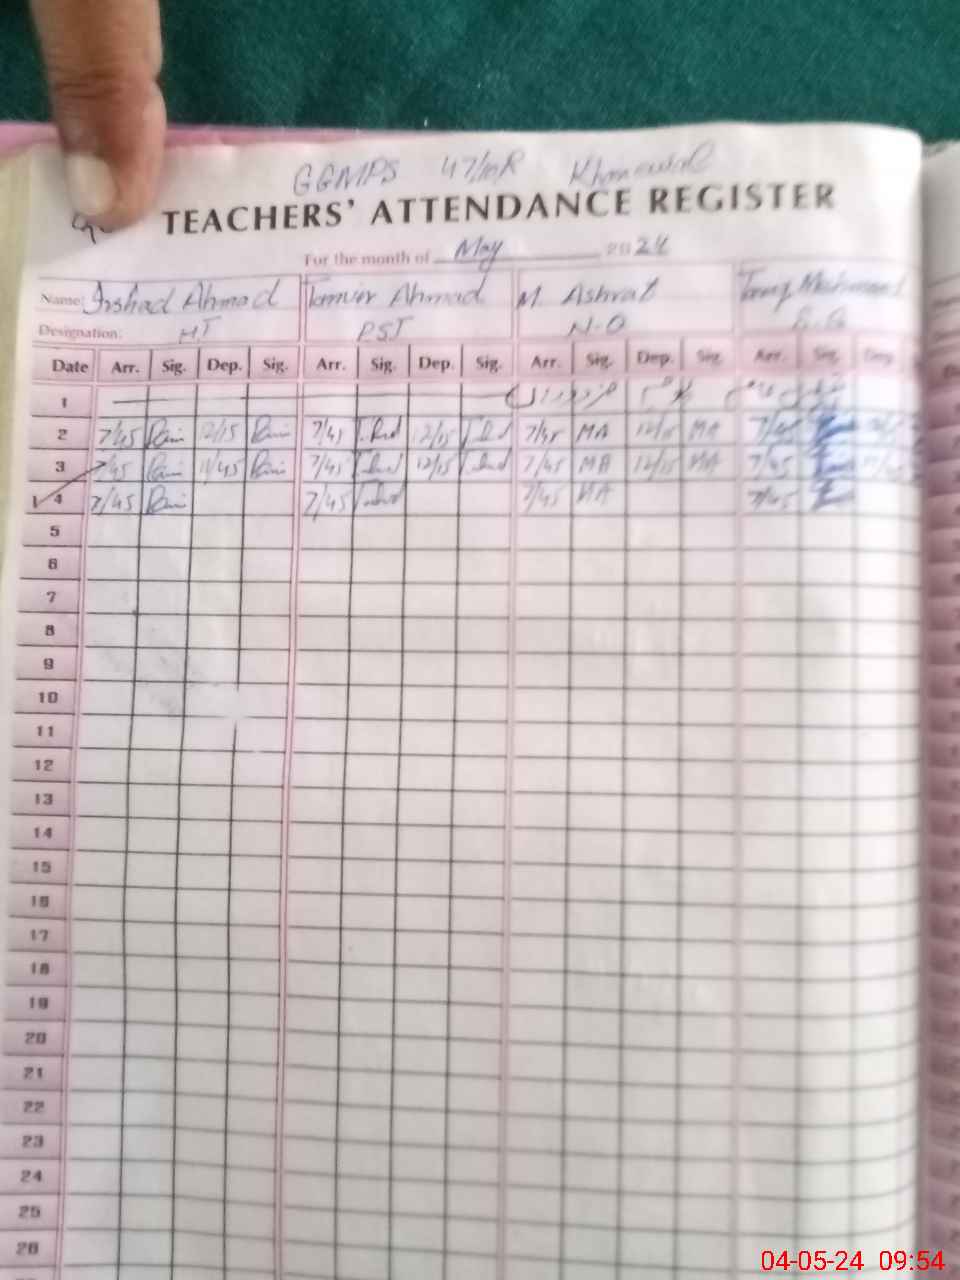 GGMPS 47/10R Khanewal
TEACHERS' ATTENDANCE REGISTER
For the month of May 2024
Name: Irshad Ahmad Tanvir Ahmad M. Ashraf
Designation: HT PST N-O
Date Arr. Sig. Dep. Sig. Arr. Sig. Dep. Sig. Arr. Sig. Dep. Sig. Arr. Sig. Dep.
1
2 7/45 12/15 7/45 12/15 7/45 MA 12/15 MA 7/45
3 7/45 11/45 7/45 12/15 7/45 MA 12/15 MA 7/45
4 7/45 7/45 7/45 MA 7/45
5
6
7
8
9
10
11
12
13
14
15
16
17
18
19
20
21
22
23
24
25
26
04-05-24 09:54